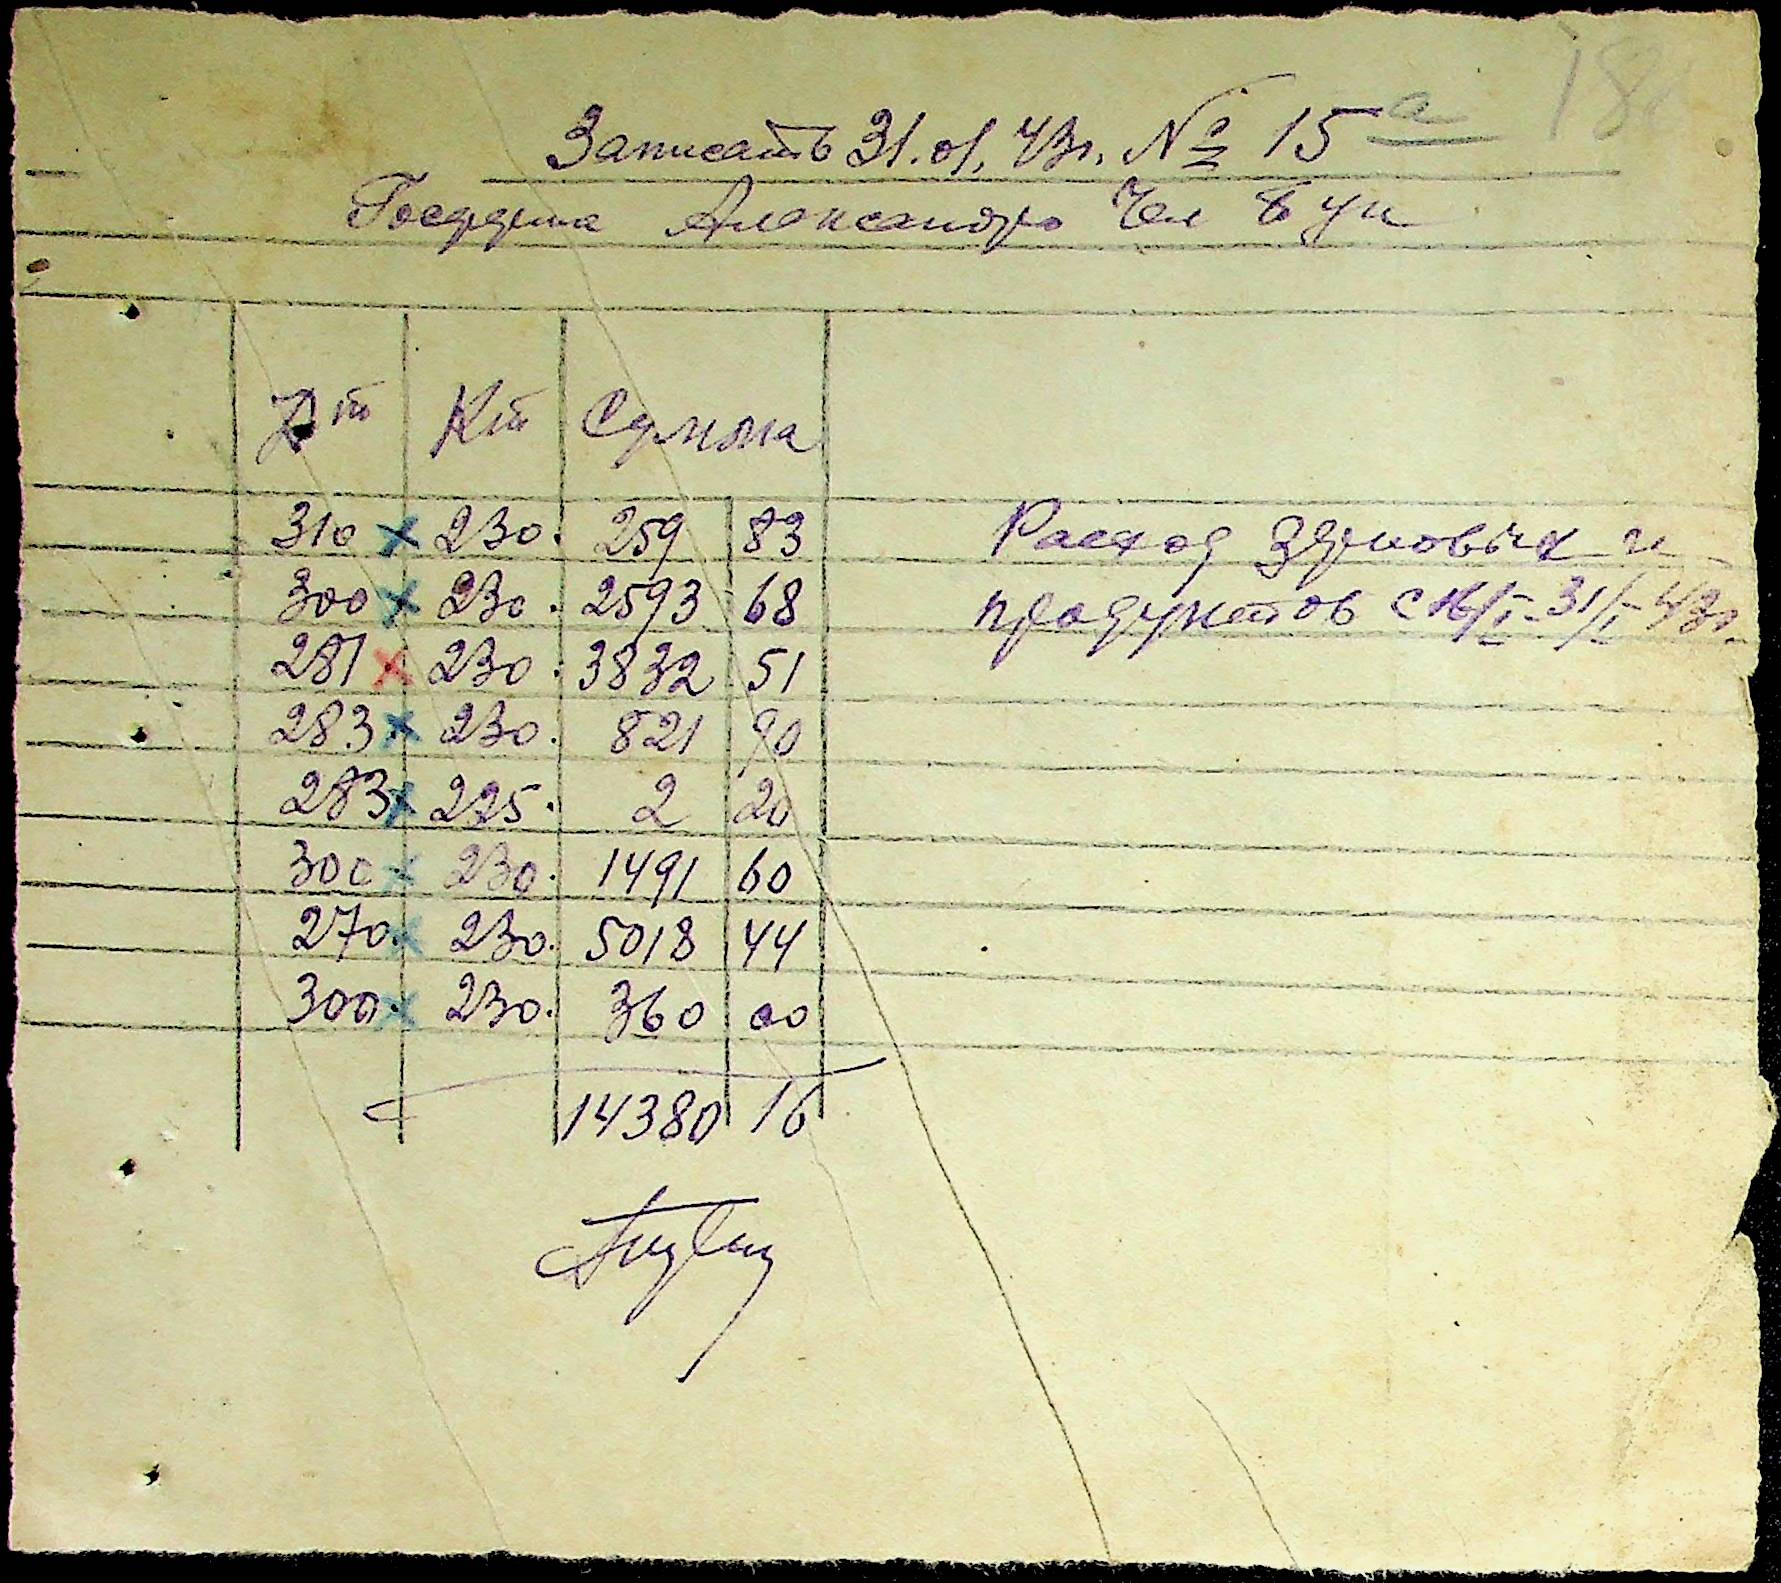 18
Записать 31.01.43г. № 15 а
Александро
Дт Кт Сумма
310 × 230. 259 83 Расход зерновых и
300 × 230. 2593 68 продуктов с 16/I-31/I-43г.
281 × 230. 3832 51
283 × 230. 821 90
283 × 225. 2 20
300 × 230. 1491 60
270. × 230. 5018 44
300. × 230. 360 00
14380 16